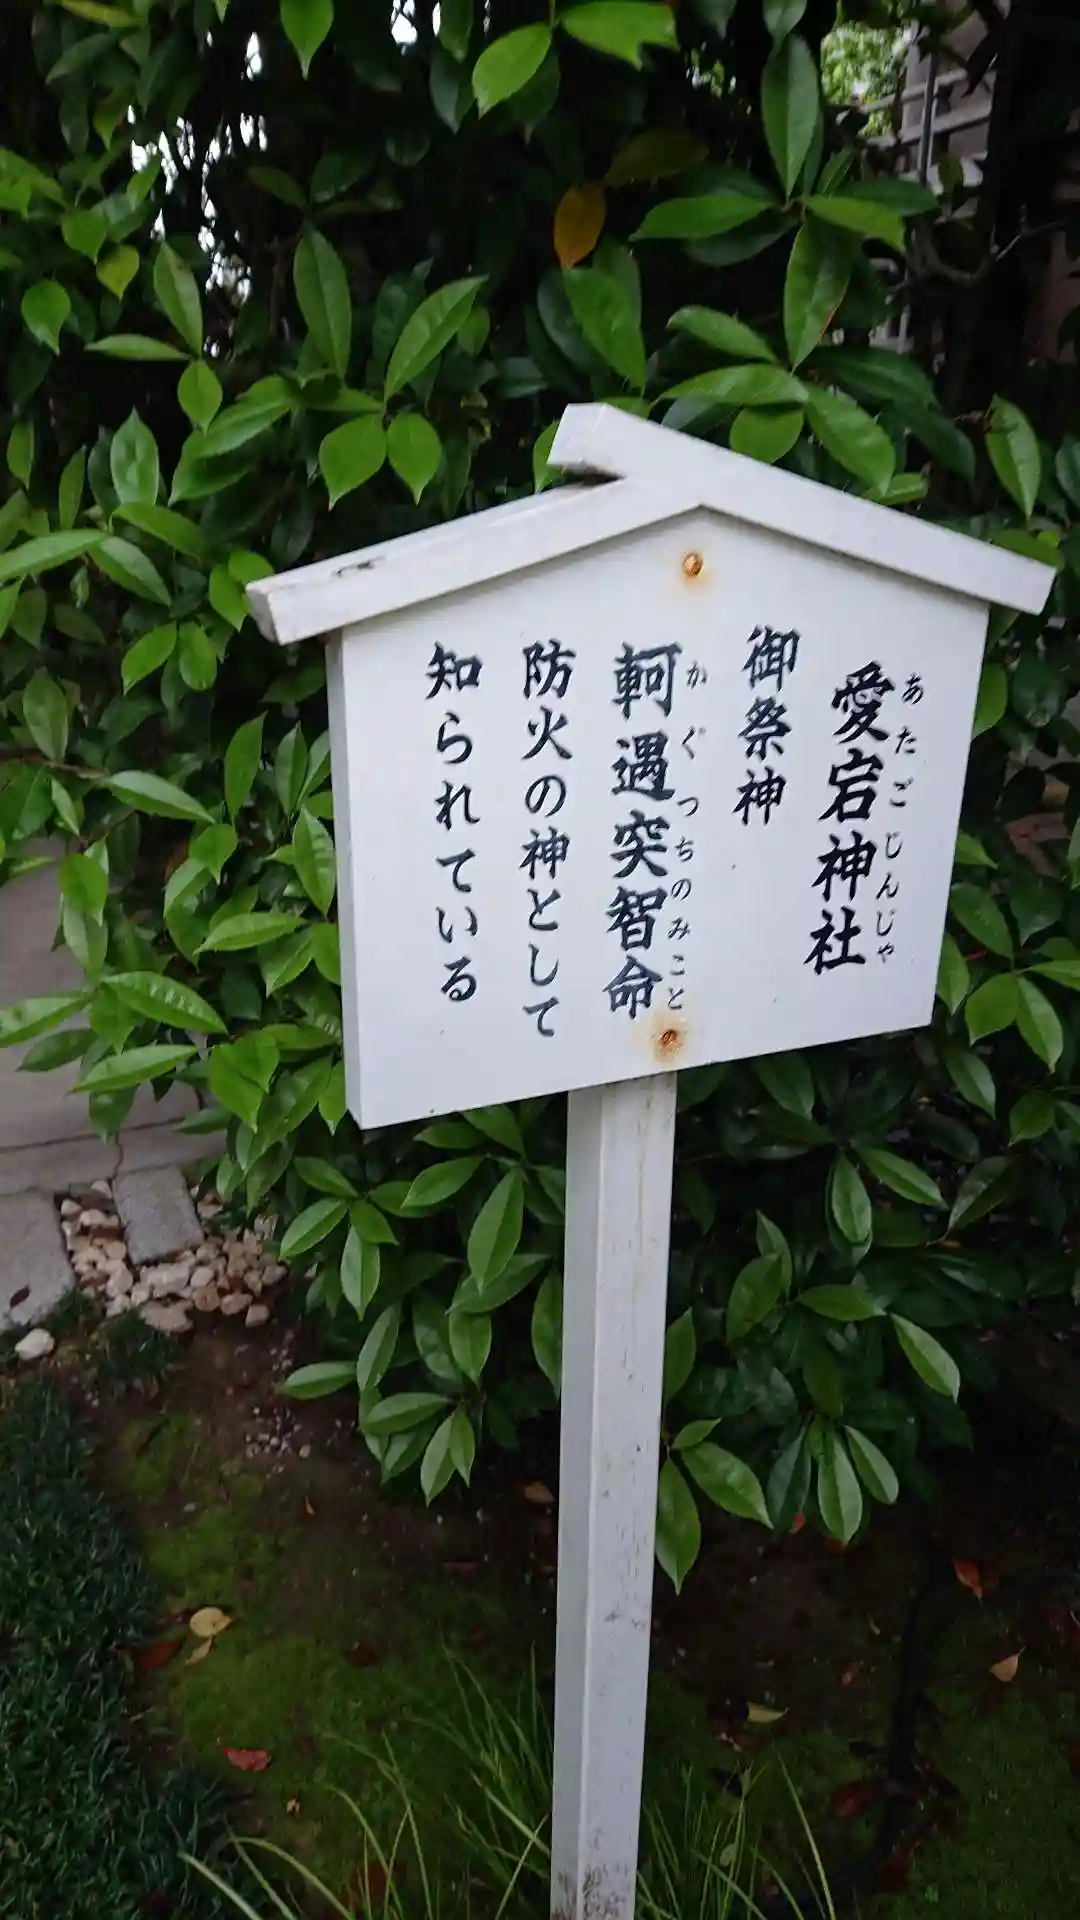 愛宕神社
あたごじんじゃ
御祭神
軻遇突智命
かぐつちのみこと
防火の神として
知られている